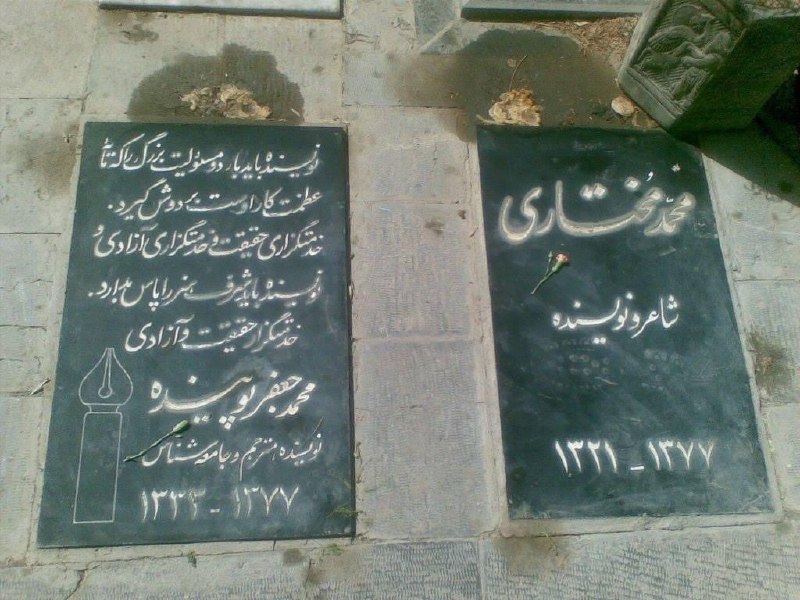 محمّد مُختاری
شاعر و نویسنده
۱۳۲۱ - ۱۳۷۷
نویسنده باید بار دو مسئولیت بزرگ را که تمام
عظمت کار اوست بر دوش گیرد.
خدمتگزاری حقیقت و خدمتگزاری آزادی و
نویسنده باید شرف هنر را پاس بدارد.
خدمتگزار حقیقت و آزادی
محمد جعفر پوینده
نویسنده مترجم و جامعه شناس
۱۳۳۳ - ۱۳۷۷